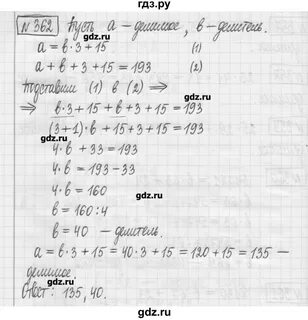 гдз.ру
№362 Пусть а – делимое, в – делитель.
а = в·3+15 (1)
а + в + 3 + 15 = 193 (2)
Подставим (1) в (2) ⇒
⇒ в·3+15 + в + 3 + 15 = 193
(3+1)·в + 15+3+15 = 193
4·в + 33 = 193
gdz.ru
4·в = 193 – 33
4·в = 160
в = 160 : 4
в = 40 – делитель.
а = в·3+15 = 40·3+15 = 120+15 = 135 –
делимое.
Ответ: 135, 40.
gdz.ru